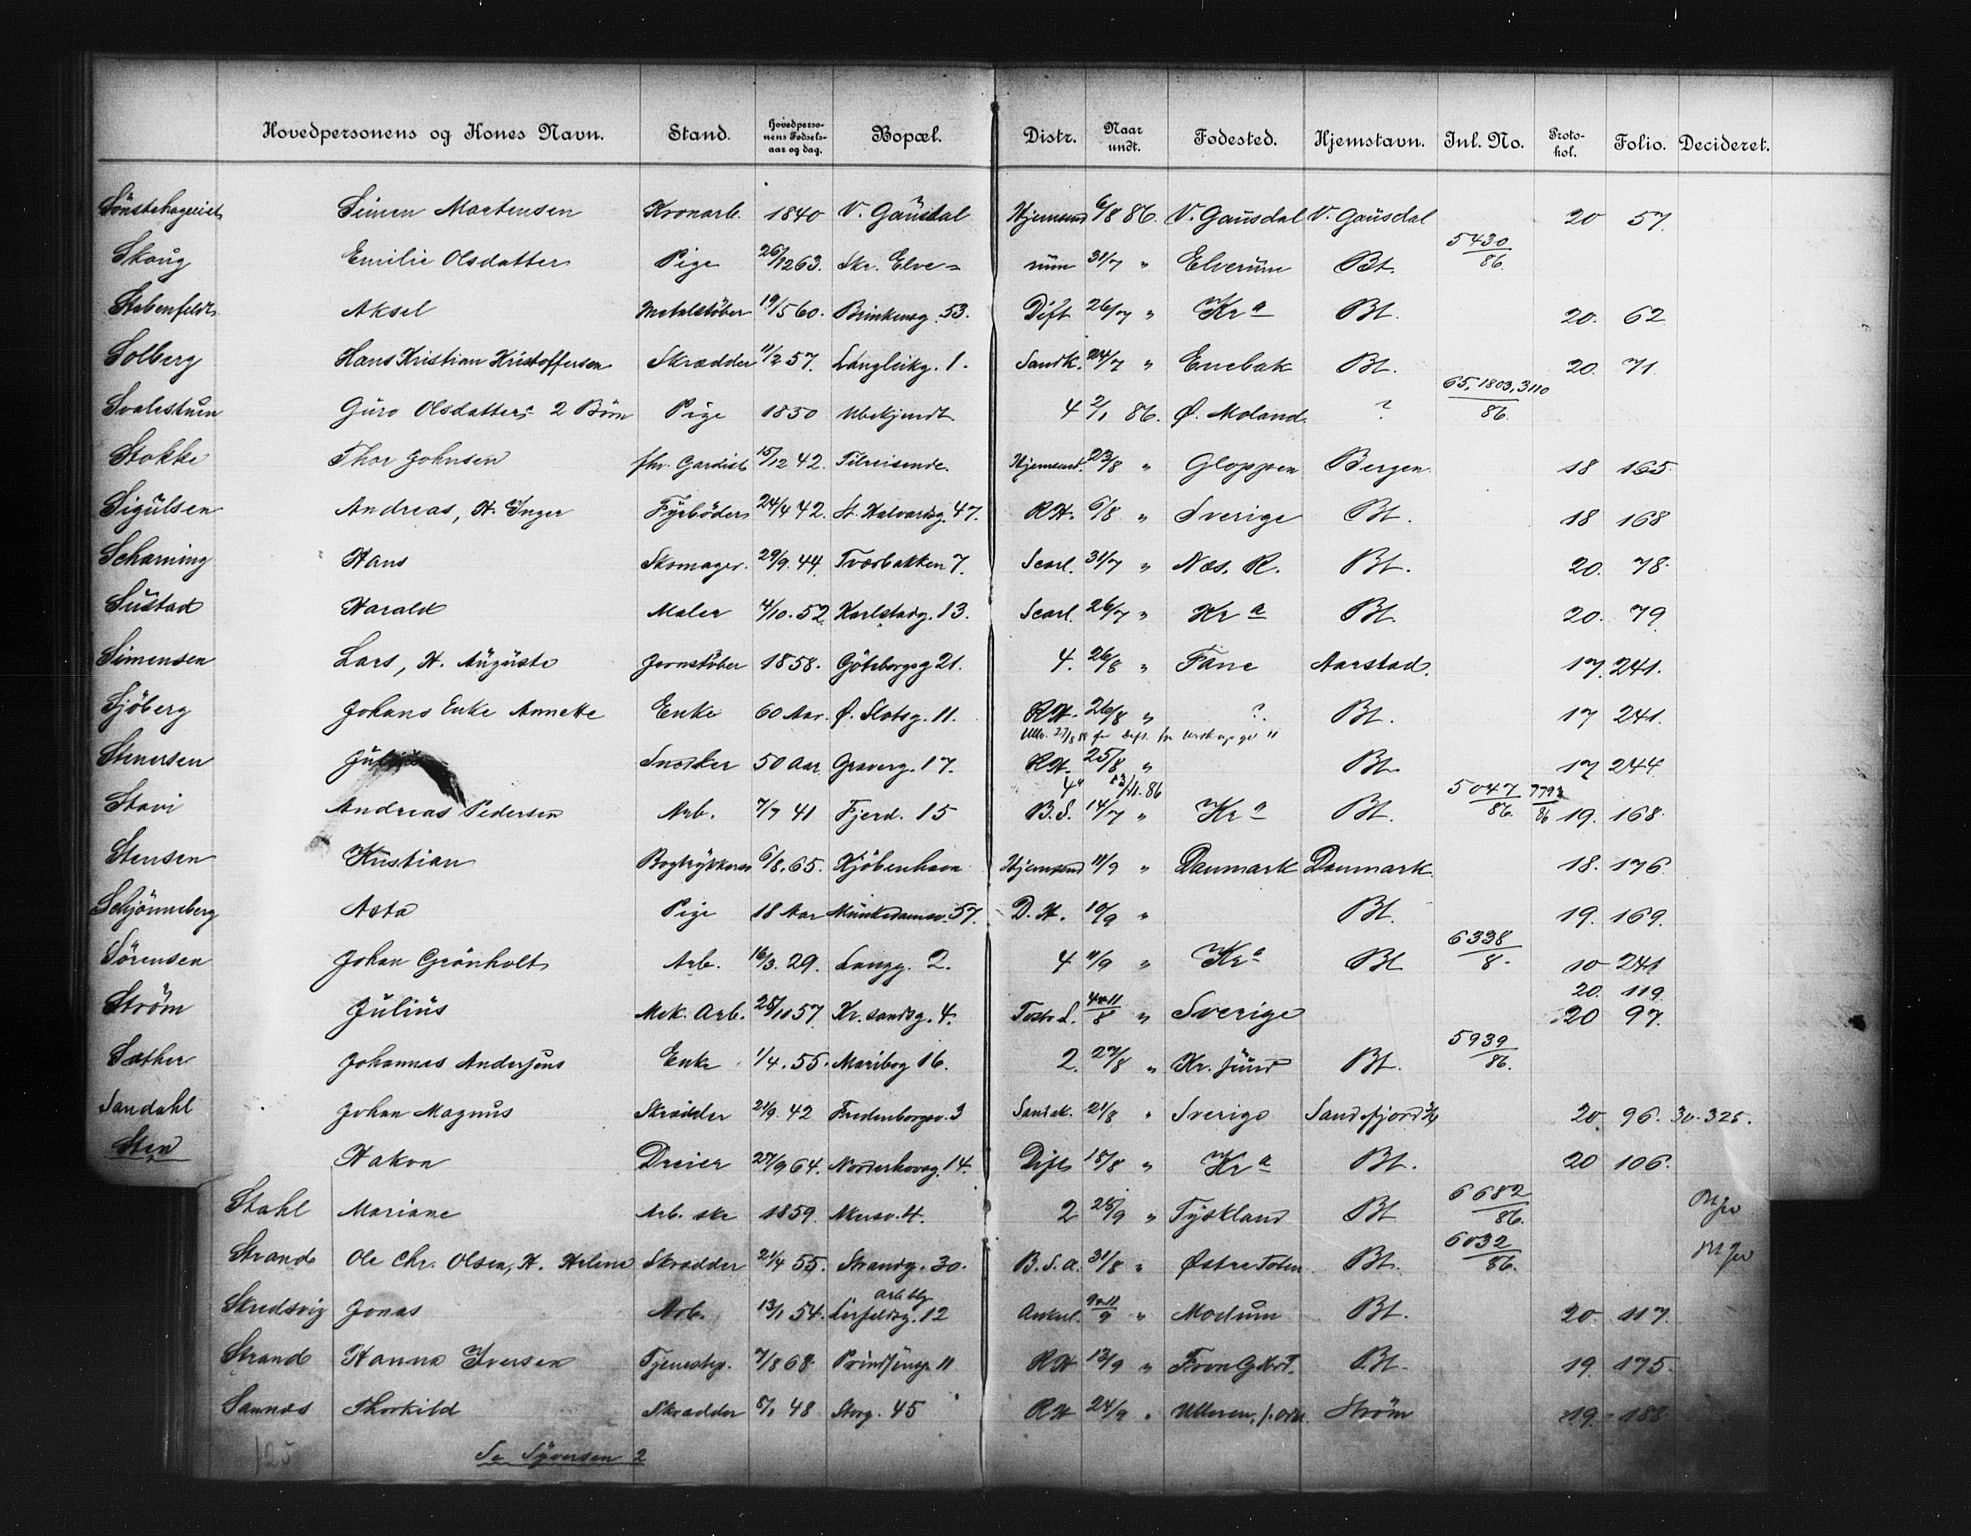 Hovedpersonens og Kones Navn. Stand. Hovedperso- nens Fødsels- aar og dag. Bopæl. Distr. Naar undt. Fødested. Hjemstavn. Inl. No. Proto- kol. Folio. Decideret.
Simen Martensen Kronarb. 1840 V. Gausdal Hjemsend 6/8 86. V. Gausdal V. Gausdal 20 57.
Skoug Emilie Olsdatter Pige 26/12 63. Skr. Elve= rum 31/7 " Elverum Bt. 5430/86.
Stabenfeldt Aksel Metalstøber 19/5 60. Brinkensg. 53. Dift 26/7 " Kra Bt. 20. 62
Solberg Hans Kristian Kristoffersen Skrædder 11/2 57. Langleikg. 1. Sandk. 24/7 " Enebak Bt. 20. 71.
Svalestuen Guro Olsdatter; 2 Børn Pige 1850 Ubekjendt 4 2/1 86. Ø. Moland ? 65, 1803, 3110/86.
Stokke Thor Johnsen fhv. Gardist 15/12 42. Tilreisende. Hjemsend. 23/8 " Gloppen Bergen 18 165
Sigulsen Andreas, H. Inger Fyrbøder 24/4 42. St. Halvardsg. 47. RH. 6/8 " Sverige Bt. 18 168
Scharning Hans Skomager. 29/9. 44. Tværbakken 7. Scarl. 31/7 " Næs, R. Bt. 20. 78.
Sustad Harald Maler 4/10. 52 Karlstadg. 13. Scarl. 26/7 " Kra Bt. 20. 79.
Simensen Lars, H. Auguste Jernstøber 1858. Göteborgsg 21. 4. 26/8 " Fane Aarstad. 17. 241.
Sjöberg Johans Enke Annette Enke 60 Aar. Ø. Slotsg. 11. RH. 26/8 " ?. Bt. 17 241.
Stenersen Snedker 50 Aar Graverg. 17. RH. 25/8 " Bt. 17 244.
4 13/11. 86
Stavi Andreas Pedersen Arb. 7/7 41 Fjerd. 15 B.S. 14/7 " Kra Bt. 5047/86. 19. 168.
Stensen Kristian 6/8. 65. Kjöbenhavn Hjemsend 11/9 " Danmark Danmark. 18. 176.
Schjönneberg Asta Pige 18 Aar Munkedamsv. 57. D.H. 10/9 " Bt. 19. 169.
Sørensen Johan Grönholt Arb. 16/3. 29. Langg. 2. 4 11/9 " Kra Bt 6338/8. 10 241
20. 119.
Strøm Julius Mek. Arb. 25/10 57. Kr. sandsg. 4. " Sverige 20 97.
Sæther Johannes Andersens Enke 1/4. 55. Maribog 16. 2. 27/8 " Kr. sund Bt. 5939/86.
Sandahl Johan Magnus Skrædder 21/9. 42 Fredensborgsv. 3 21/8 " Sverige Sandefjord 20. 96. 30. 325.
Sten Hakon Dreier 27/9 64. Norderhovsg. 14. Dift 18/8 " Kra Bt. 20 106.
Stahl Mariane Arb. ske 1859. Akersv. 4. 2 28/9 " Tyskland Bt 6682/86.
Strand Ole Chr. Olsen, H. Helene Skrædder 21/4 55. Strandg. 30. B.S.a. 31/8 " Østre Toten Bt. 6032/86.
Skredsvig Jonas Arb. 13/1 54. Lerfeldsg. 12 Ankerl. " Modum Bt 20. 117.
Strand Hanna Iversen Tjenestep. 7/8 68 11 RH 13/9 " Bt. 19. 175.
Sannæs Thorkild Skrædder 5/1 48 Storg. 45 RH 24/9 " Ulleren, Strøm 19. 188
125 Se Syversen 2